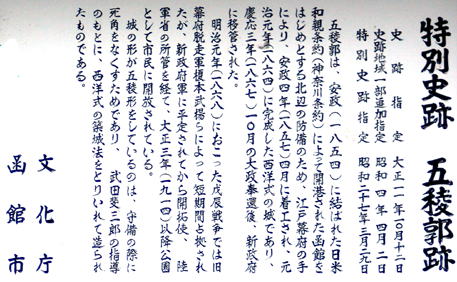 特別史跡 五稜郭跡
史跡指定 大正一一年一〇月一二日
史跡地域一部追加指定 昭和四年四月二日
特別史跡指定 昭和二十七年三月二九日
五稜郭は、安政一(一八五四)に結ばれた日米
和親条約(神奈川条約)によって開港された函館を
はじめとする北辺の防備のため、江戸幕府の手
により、安政四年(一八五七)四月に着工され、元
治元年(一八六四)に完成した西洋式の城であり、
慶応三年(一八六七)一〇月の大政奉還後、新政府
に移管された。
明治元年(一八六八)におこった戊辰戦争では旧
幕府脱走軍榎本武揚らによって短期間占拠され
たが、新政府軍に平定されてから開拓使、陸
軍省の所管を経て、大正三年(一九一四)以降公園
として市民に開放されている。
城の形が五稜形をしているのは、守備の際に
死角をなくすためであり、武田斐三郎の指導
のもとに、西洋式の築城法をとりいれて造られ
たものである。
文化庁
函館市